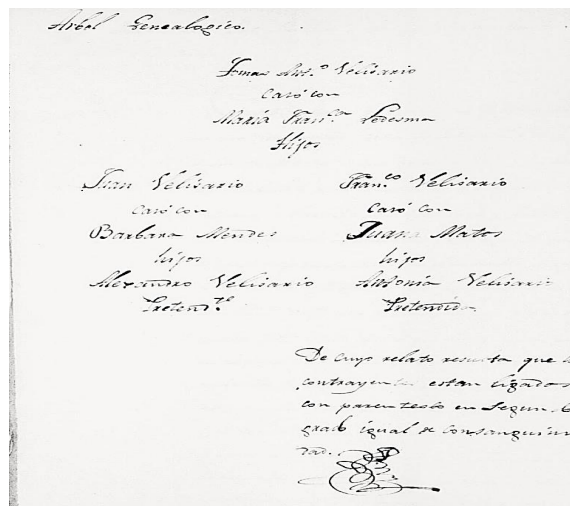 Arbol Genealogico.
Tomas Ant.º Velisario
Casó con
Maria Fran.ca Ledesma
Hijos
Juan Velisario
Casó con
Barbara Mendes
hijos
Alexandro Velisario
Pretend.te
Fran.co Velisario
Casó con
Juana Matos
hijos
Antonia Velisario
Pretendida
De cuyo relato resulta que
contrayentes estan ligados
con parentesco en Segun
grado igual de Consanguini
dad.